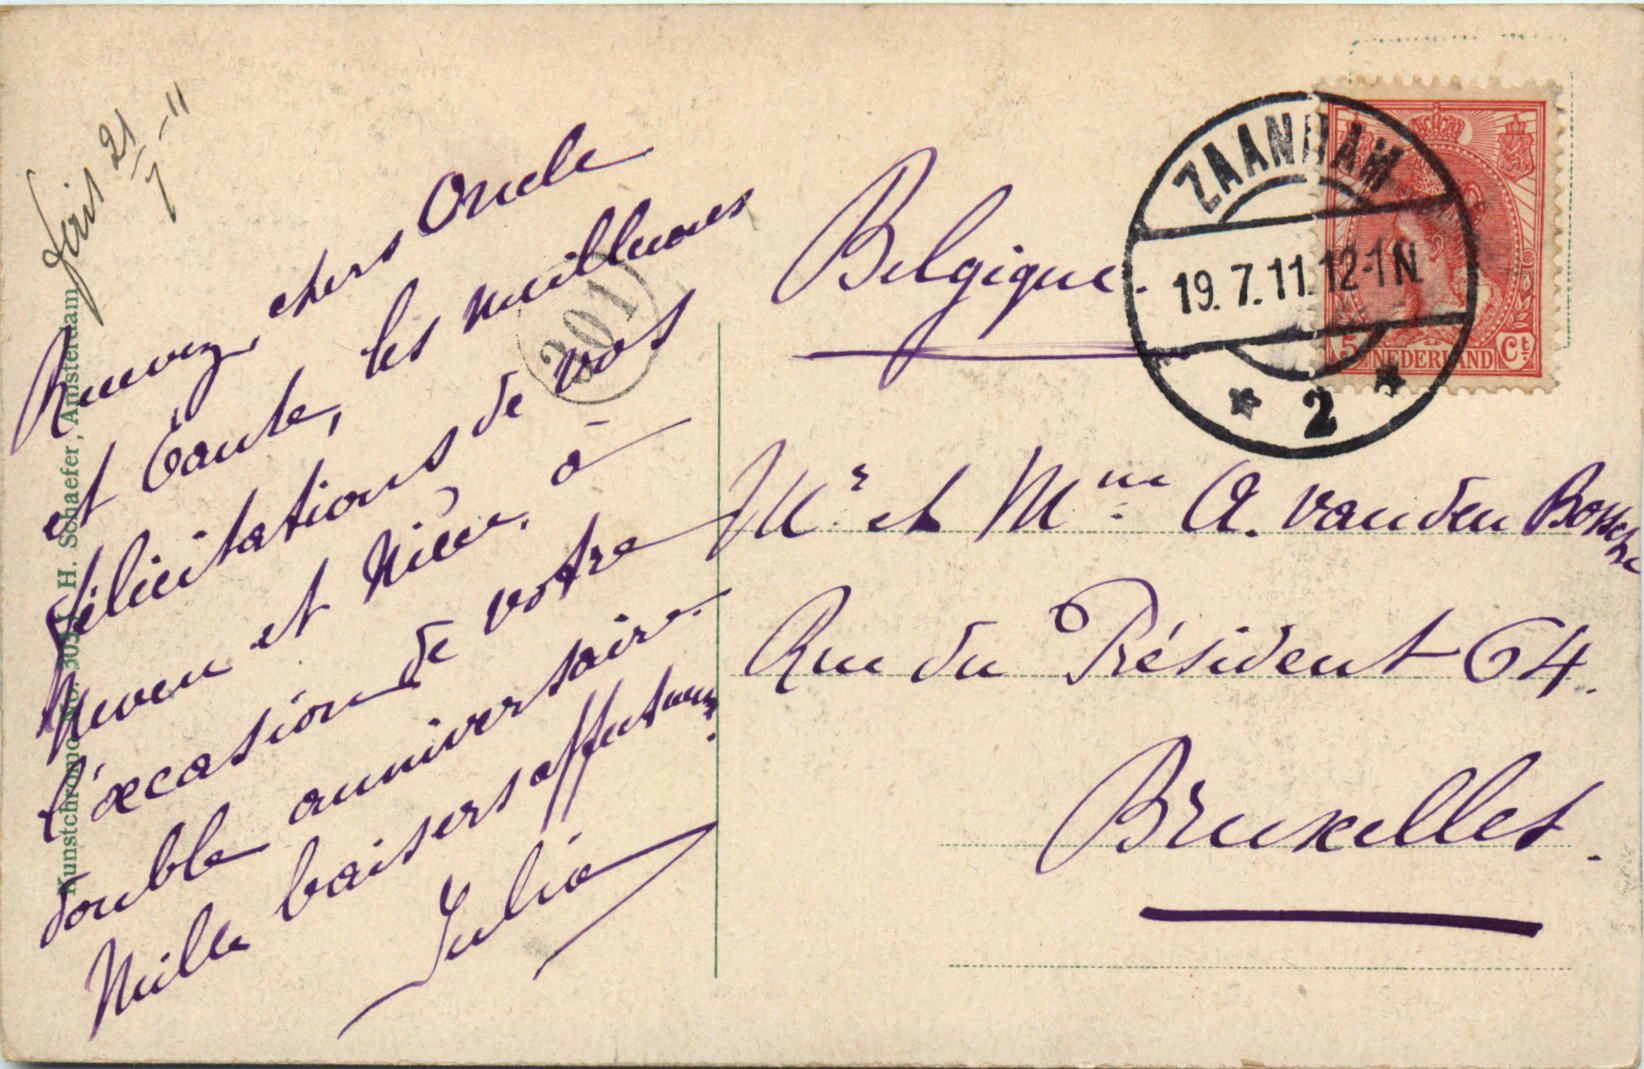 21/7-11
Recevez, chers Oncle
et Tante, les meilleures
félicitations de vos
Neveu et Nièce, à
l'occasion de votre
double anniversaire.
Mille baisers affectueux.
Julia
Kunstchromo No. H. Schaefer, Amsterdam
301
Belgique.
ZAANDAM
19.7.11.12-1N
* 2 *
5 NEDERLAND Ct
Mr. et Mme A. van den Bossche
Rue du Président 64.
Bruxelles.